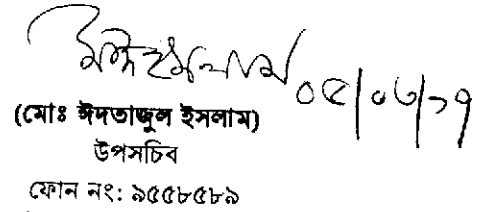 ০৫/০৬/১৭
(মোঃ ঈদতাজুল ইসলাম)
উপসচিব
ফোন নং: ৯৫৫৮৫৮৯